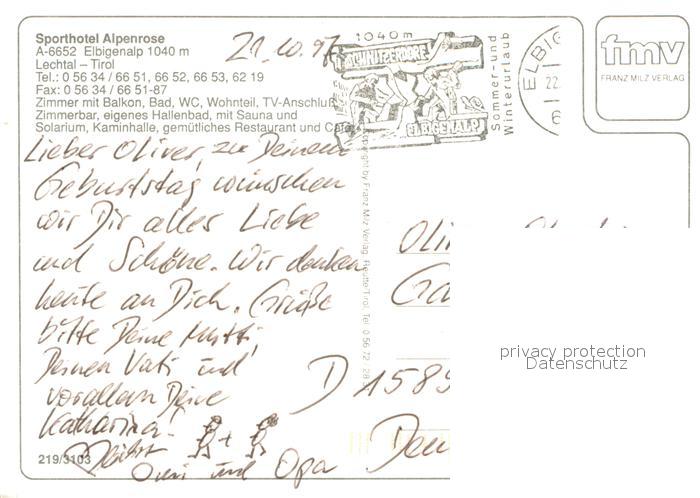 Sporthotel Alpenrose
A-6652 Elbigenalp 1040 m
Lechtal – Tirol
Tel.: 0 56 34 / 66 51, 66 52, 66 53, 62 19
Fax: 0 56 34 / 66 51-87
Zimmer mit Balkon, Bad, WC, Wohnteil, TV-Anschluß
Zimmerbar, eigenes Hallenbad, mit Sauna und
Solarium, Kaminhalle, gemütliches Restaurant und Café
21.10.97
1040m
SCHNITZERDORF
ELBIGENALP
Sommer-und
Winterurlaub
ELBIG
22.
6
fmv
FRANZ MILZ VERLAG
Lieber Oliver, zu Deinem
Geburtstag wünschen
wir Dir alles Liebe
und Schöne. Wir denken
heute an Dich. Grüße
bitte Deine Mutti,
Deinen Vati und
vorallem Deine
Katharina!
Omi und Opa
219/3103
Copyright by Franz Milz Verlag, Reutte/Tirol, Tel. 0 56 72
Oli
Ga
D 1589
Deu
privacy protection
Datenschutz